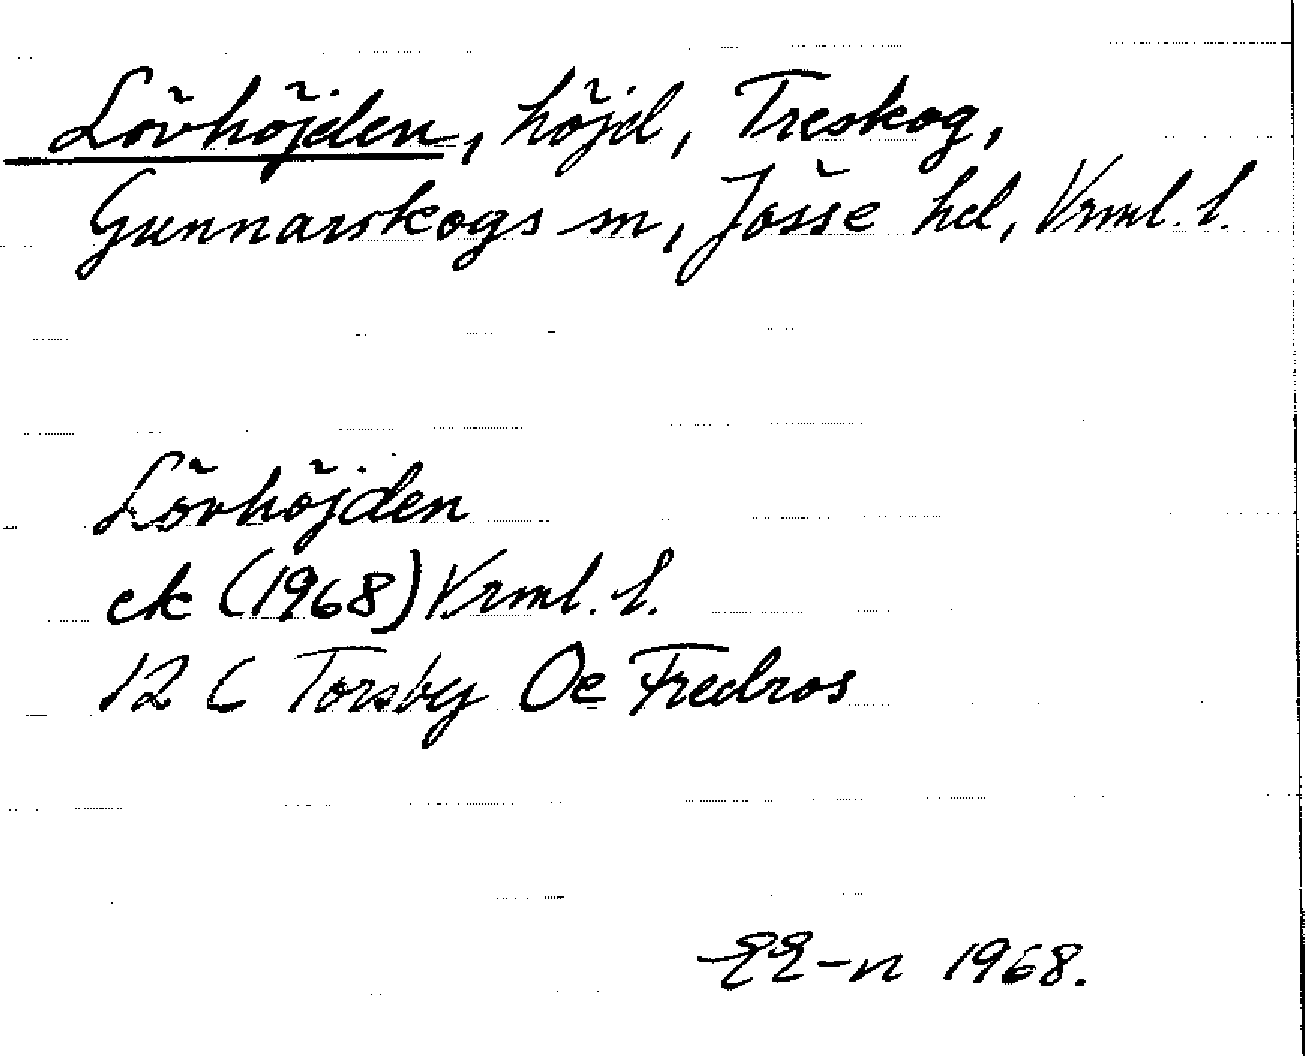 Lövhöjden, höjd, Treskog,
Gunnarskogs sn, Jösse hd, Vrml. l.
Lövhöjden
ek (1968) Vrml. l.
12 C Torsby Oe Fredros
EE-n 1968.